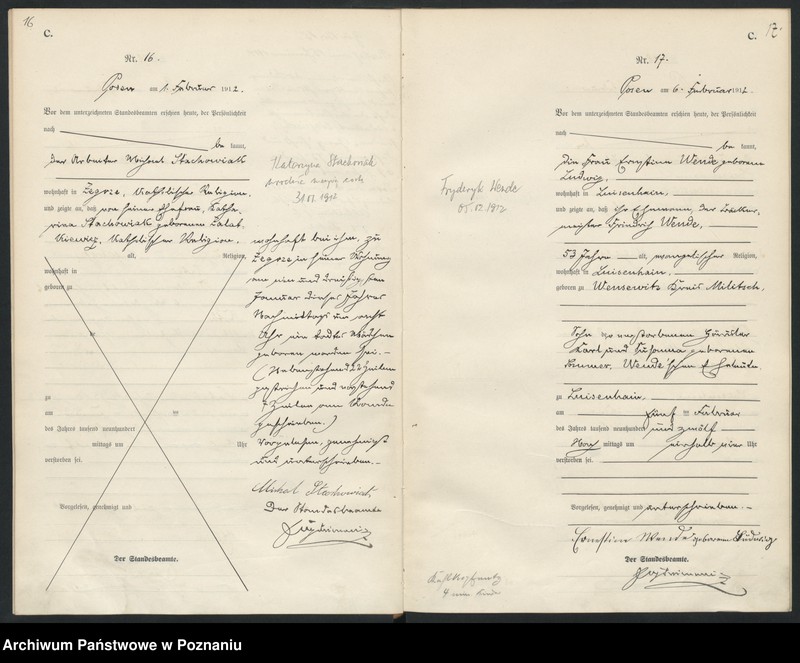 16
C.
Nr. 16.
Posen am 1. Februar 1912.
Vor dem unterzeichneten Standesbeamten erschien heute, der Persönlichkeit
nach
be kannt,
der Arbeiter Michael Stachowiak
wohnhaft in Żegrze, katholischer Religion,
und zeigte an, daß von seiner Ehefrau, Katha-
rina Stachowiak geborenen
katholischer Religion,
alt, Religion,
wohnhaft in
geboren zu
zu
am
des Jahres tausend neunhundert
mittags um Uhr
verstorben sei.
Vorgelesen, genehmigt und
Der Standesbeamte.
Katarzyna Stachowiak
31.01.1912
wohnhaft bei ihm, zu
Żegrze in seiner Wohnung
am ein und dreißigsten
Januar dieses Jahres
Nachmittags um acht
Uhr ein todtes Mädchen
geboren worden sei. –
(Nebenstehend 22 Zeilen
gestrichen und vorstehend
7 Zeilen am Rande
geschrieben.)
Vorgelesen, genehmigt
und unterschrieben. –
Michał Stachowiak,
Der Standesbeamte
17.
C.
Nr. 17.
Posen am 6. Februar 1912.
Vor dem unterzeichneten Standesbeamten erschien heute, der Persönlichkeit
nach
be kannt,
die Frau Ernstine Wende geborene
Ludwig,
wohnhaft in Luisenhain,
und zeigte an, daß ihr Ehemann, der
meister Friedrich Wende,
53 Jahre alt, evangelischer Religion,
wohnhaft in Luisenhain,
geboren zu Wensewitz Kreis Militsch,
Sohn der verstorbenen Häusler
Karl und Susanna geborenen
Sommer, Wende'schen Eheleute,
zu Luisenhain,
am fünften Februar
des Jahres tausend neunhundert und zwölf
Nach mittags um einhalb vier Uhr
verstorben sei.
Vorgelesen, genehmigt und unterschrieben. –
Ernestine Wende geborene Ludwig
Der Standesbeamte.
Fryderyk Wende
05.02.1912
Archiwum Państwowe w Poznaniu